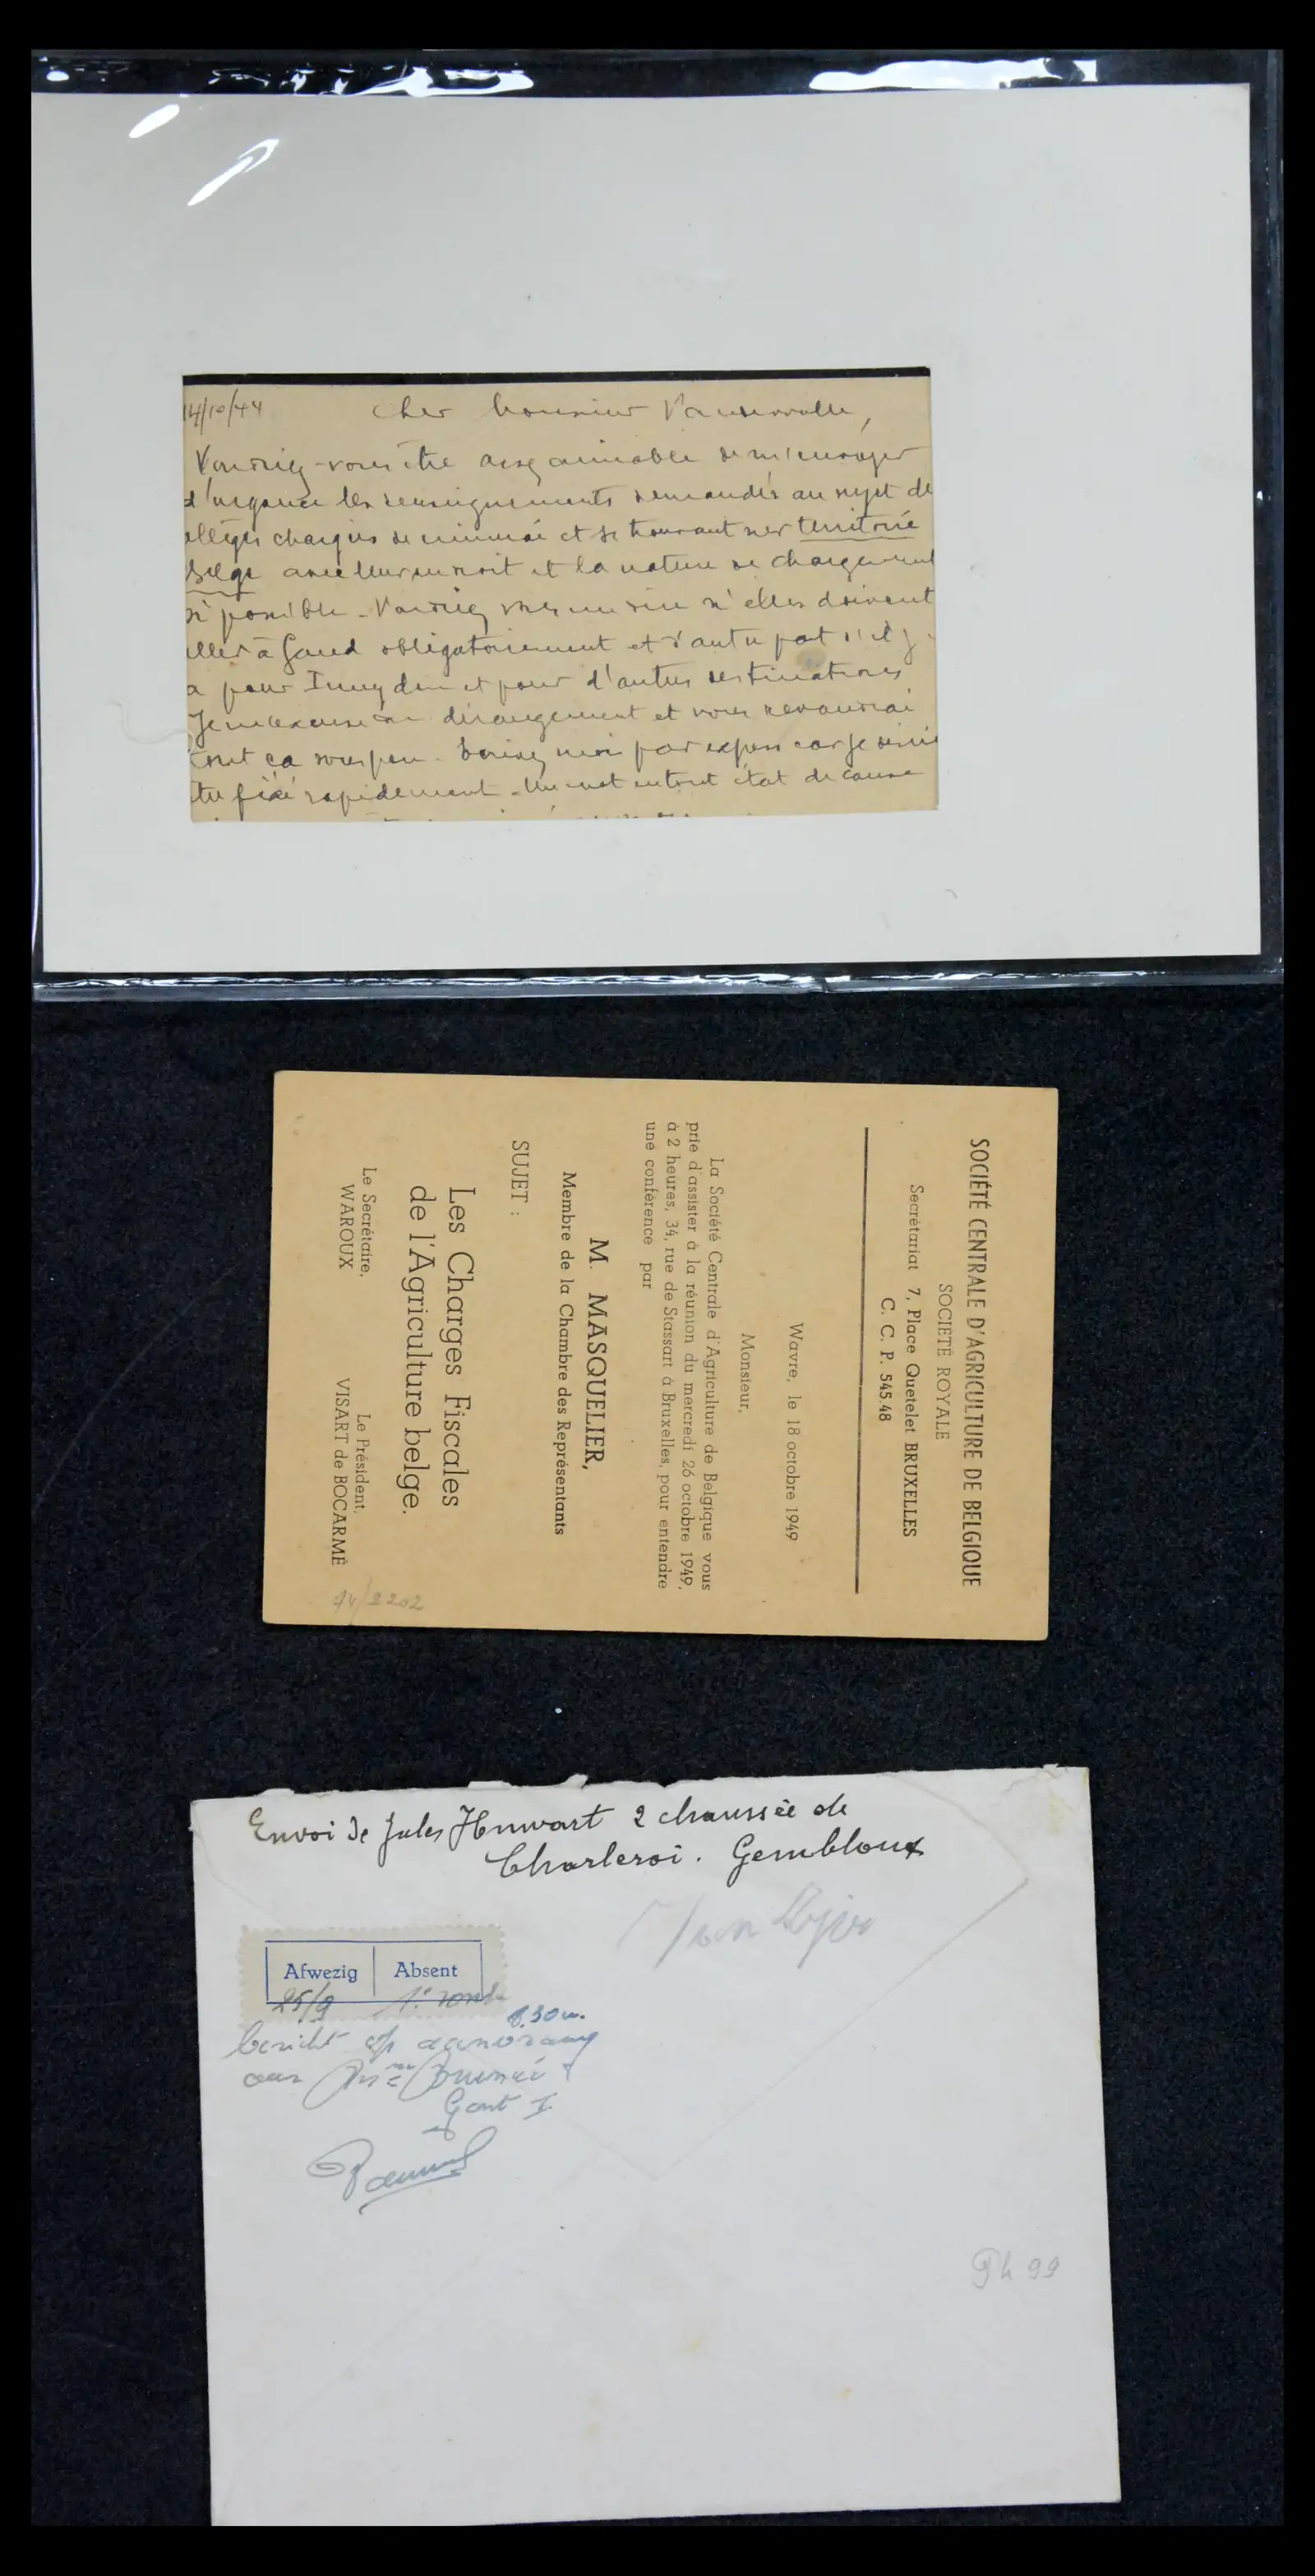 14/10/44
Cher Monsieur
Voudriez-vous être assez aimable de m'envoyer
d'urgence les renseignements demandés au sujet de
alléges chargées de minerai et se trouvant sur territoire
Belge avec leur endroit et la nature de chargement
si possible - Voudriez vous me dire si elles doivent
aller à Gand obligatoirement et d'autre part s'il y
a pour et pour d'autres destinations
Je m'excuse du dérangement et vous revaudrai
tout ça sous peu. par expres car je
être fixé rapidement - Un mot en tout état de cause
SOCIÉTÉ CENTRALE D'AGRICULTURE DE BELGIQUE
SOCIÉTÉ ROYALE
Secrétariat 7, Place Quetelet BRUXELLES
C. C. P. 545.48
Wavre, le 18 octobre 1949
Monsieur,
La Société Centrale d'Agriculture de Belgique vous
prie d'assister à la réunion du mercredi 26 octobre 1949,
à 2 heures, 34, rue de Stassart à Bruxelles, pour entendre
une conférence par
M. MASQUELIER,
Membre de la Chambre des Représentants
SUJET :
Les Charges Fiscales
de l'Agriculture belge.
Le Secrétaire,
WAROUX
Le Président,
VISART de BOCARMÉ
14/2202
Envoi de Jules Hunwart 2 chaussée de
Charleroi. Gembloux
Afwezig Absent
25/9 1e ronde
8.30 u.
bericht op aanvraag
aan
Gent I
Ph 99